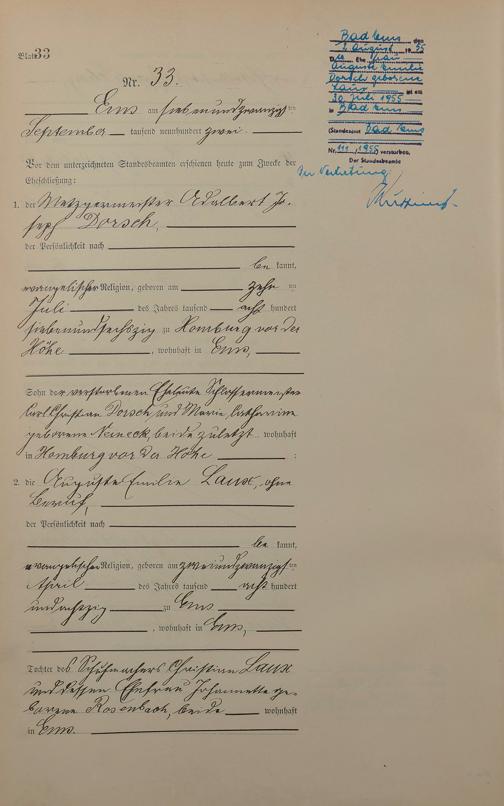 Blatt 33
Nr. 33.
Ems am siebenundzwanzigsten
September tausend neunhundert zwei
Vor dem unterzeichneten Standesbeamten erschienen heute zum Zwecke der
Eheschließung:
1. der Metzgermeister Adalbert Jo-
seph Dorsch,
der Persönlichkeit nach
be kannt,
evangelischer Religion, geboren am zehn ten
Juli des Jahres tausend acht hundert
siebenundsechszig zu Homburg vor der
Höhe, wohnhaft in Ems,
Sohn der verstorbenen Eheleute Schlossermeister
Carl Christian Dorsch und Marie Catharine
geborene, beide zuletzt wohnhaft
in Homburg vor der Höhe;
2. die Auguste Emilie Laux, ohne
Beruf,
der Persönlichkeit nach
be kannt,
evangelischer Religion, geboren am zweiundzwanzigsten
April des Jahres tausend acht hundert
undachtzig zu Ems
, wohnhaft in Ems,
Tochter des Schuhmachers Christian Laux
und dessen Ehefrau Johannette ge-
borene Rosenbach, beide wohnhaft
in Ems.
Bad Ems den
2. August 1955
Die Ehefrau
Auguste Emilie
Dorsch geborene
Laux ist am
30. Juli 1955
in Bad Ems
(Standesamt Bad Ems
Nr. 111/1955 verstorben.
Der Standesbeamte
In Vertretung